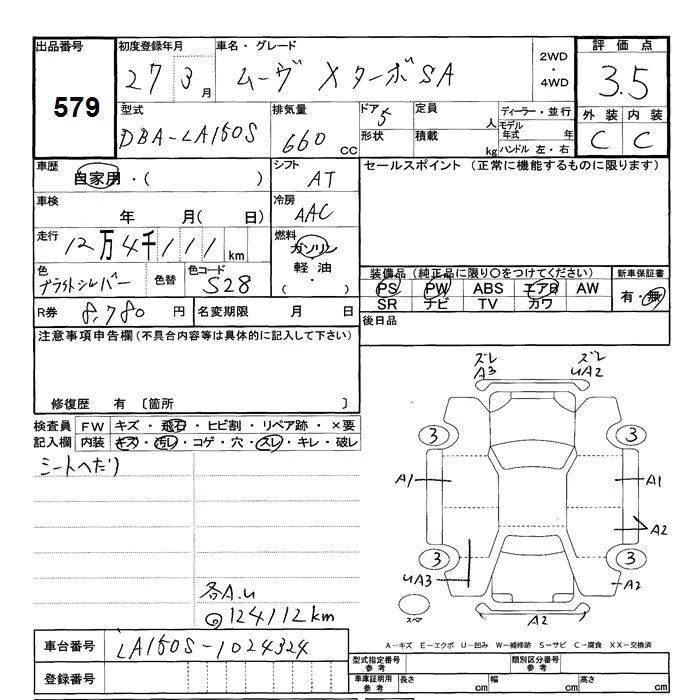 出品番号 初度登録年月 車名・グレード 2WD ・ 4WD 評価点
579 27 3月 ムーヴ XターボSA 3.5
型式 排気量 ドア 定員 ディーラー・並行 外装 内装
DBA-LA150S 660cc 5 人 モデル年式 年 C C
形状 積載 kg ハンドル 左・右
車歴 自家用・( ) シフト AT セールスポイント (正常に機能するものに限ります)
車検 年 月( 日) 冷房 AAC
走行 12万4千111km 燃料 ガソリン・軽油・( )
色 ブライトシルバー 色替 色コード S28 装備品(純正品に限り○をつけてください) 新車保証書
PS PW ABS エアB AW 有・無
SR ナビ TV カワ
R券 8,780円 名変期限 月 日 後日品
注意事項申告欄(不具合内容等は具体的に記入して下さい)
修復歴 有 〔箇所 〕
検査員記入欄 FW キズ・飛石・ヒビ割・リペア跡・×要
内装 キズ・汚レ・コゲ・穴・スレ・キレ・破レ
シートへたり
各A.u
124112km
ズレ A3 ズレ uA2
3 3
A1 A1
A2
3 3
uA3 A2
スペア A2
A-キズ E-エクボ U-凹み W-補修跡 S-サビ C-腐食 XX-交換済
車台番号 LA150S-1024324
登録番号
型式指定番号 参考 類別区分番号 参考
車庫証明用 参考 長さ cm 幅 cm 高さ cm